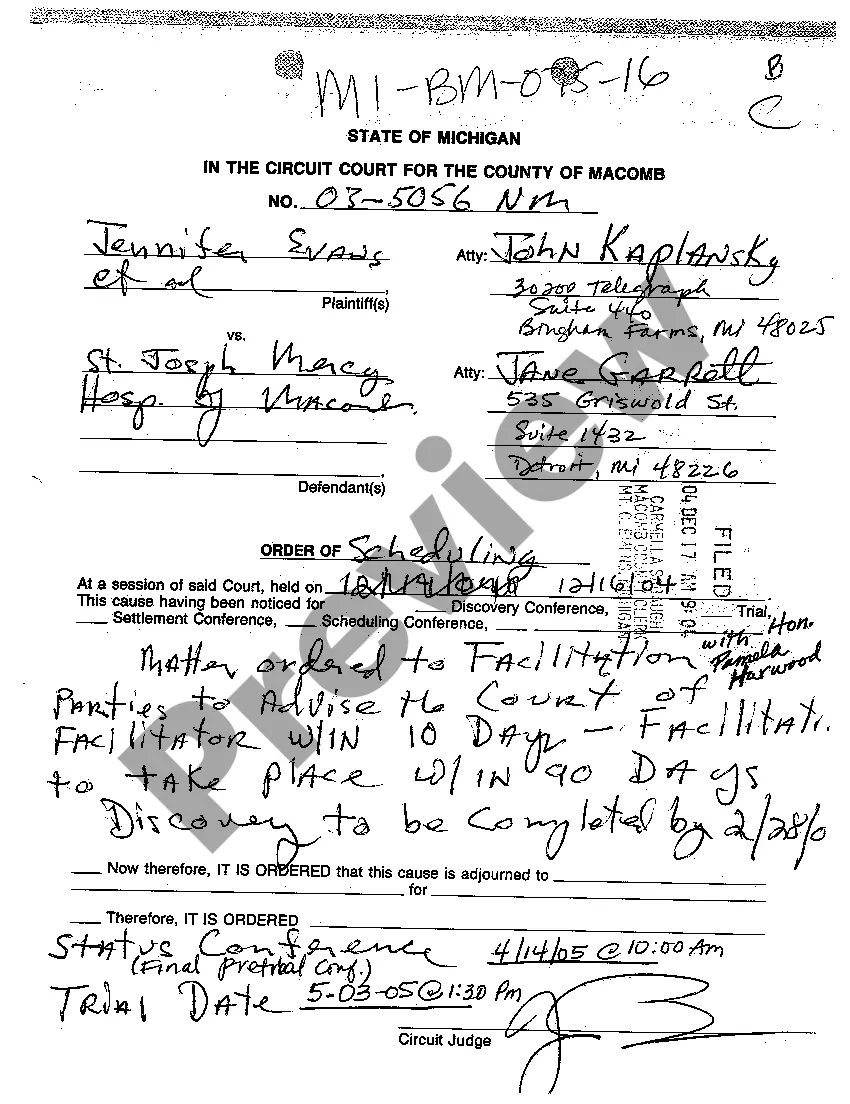 MI-BM-095-16
B
C
STATE OF MICHIGAN
IN THE CIRCUIT COURT FOR THE COUNTY OF MACOMB
NO. 03-5056 NM
Jennifer Evans
et al
Plaintiff(s)
Atty: John Kaplansky
30200 Telegraph
Suite 440
Bingham Farms, MI 48025
vs.
St. Joseph Mercy
Hosp. of Macomb
Defendant(s)
Atty: Jane Garrett
535 Griswold St.
Suite 1432
Detroit, MI 48226
FILED
04 DEC 17 AM 9:04
MACOMB COUNTY CLERK
MT. CLEMENS, MICHIGAN
ORDER OF Scheduling
At a session of said Court, held on 12/16/04
This cause having been noticed for ___ Discovery Conference, ___ Trial,
___ Settlement Conference, ___ Scheduling Conference,
Matter ordered to Facilitation with Hon. Pamela Harwood
Parties to Advise the Court of
Facilitator w/in 10 Days — Facilitati
to take place w/in 90 Days
Discovery to be completed by 2/28/0
___ Now therefore, IT IS ORDERED that this cause is adjourned to
for
___ Therefore, IT IS ORDERED
Status Conference 4/14/05 @ 10:00 Am
(Final Pretrial Conf.)
Trial Date 5-03-05 @ 1:30 Pm
Circuit Judge
Preview